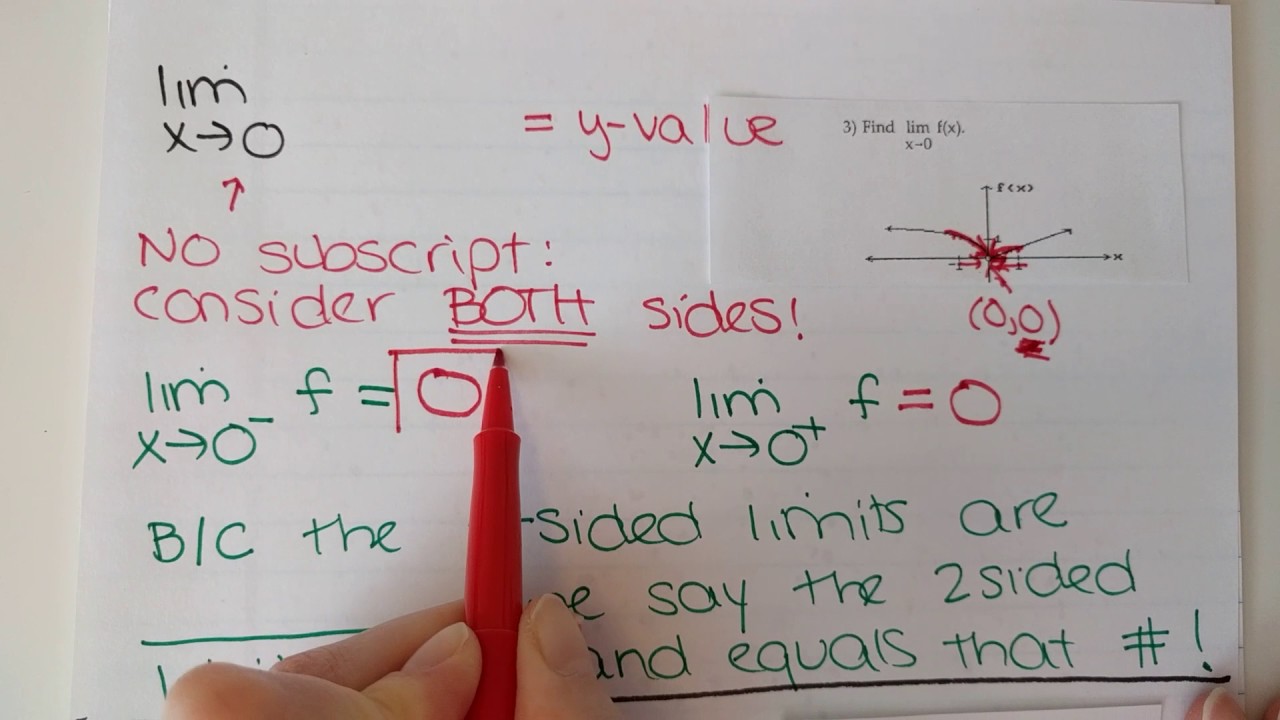 lim
x→0
= y-value
3) Find lim f(x).
x→0
f(x)
x
(0,0)
↑
NO subscript:
consider BOTH sides!
lim f = 0
x→0⁻
lim f = 0
x→0⁺
B/C the -sided limits are
say the 2sided
and equals that #!